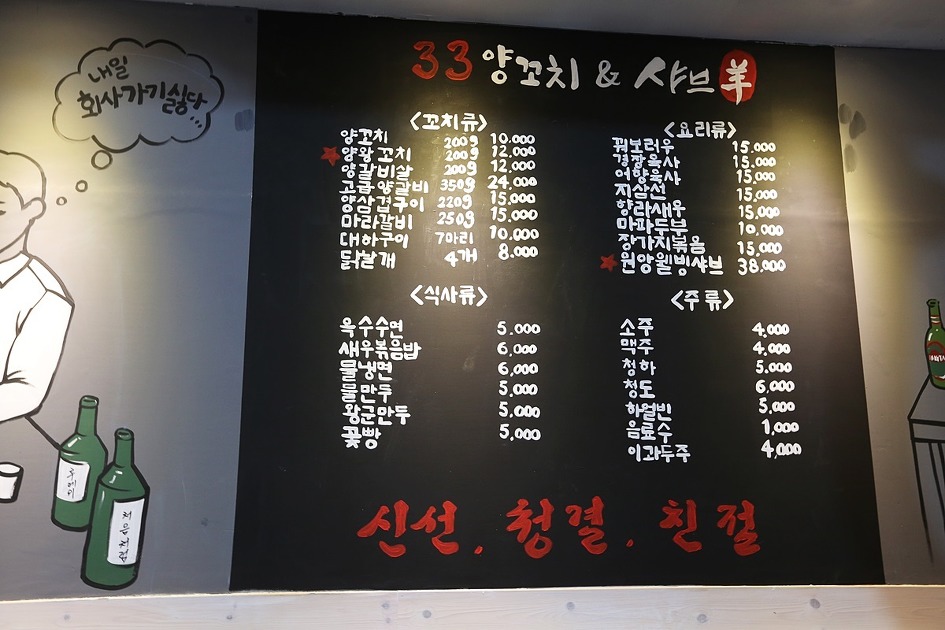 내일
회사가기싫다...
33 양꼬치 & 샤브 羊
<꼬치류>
양꼬치 200g 10.000
양왕꼬치 200g 12.000
양갈비살 200g 12.000
고급양갈비 350g 24.000
양삼겹구이 220g 15.000
마라갈비 250g 15.000
대하구이 7마리 10.000
닭날개 4개 8.000
<요리류>
꿔보러우 15.000
경장육사 15.000
어향육사 15.000
지삼선 15.000
향라새우 15.000
마파두부 10.000
장가지볶음 15.000
원앙웰빙샤브 38.000
<식사류>
옥수수면 5.000
새우볶음밥 6.000
물냉면 6.000
물만두 5.000
왕군만두 5.000
꽃빵 5.000
<주류>
소주 4.000
맥주 4.000
청하 5.000
청도 6.000
하얼빈 5.000
음료수 1.000
이과두주 4.000
신선. 청결. 친절